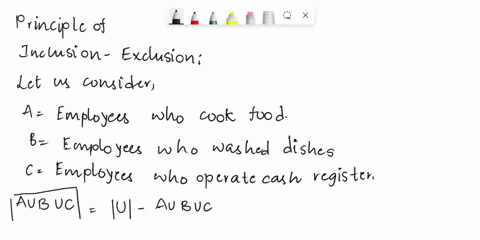 Principle of
Inclusion - Exclusion:
Let us consider,
A = Employees who cook food.
B = Employees who washed dishes
C = Employees who operate cash register.
|A̅∪̅B̅∪̅C̅| = |U| - A∪B∪C